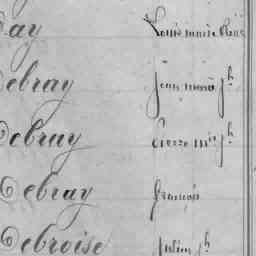 ay Louis marie
Debray jean marie jh
Debray Pierre mie jh
Debray françois
Debroise julien jh